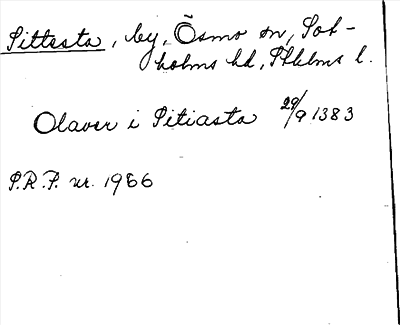 Pittesta, by, Ösmo sn, Sot-
holms hd, Sthlms l.
Olaver i Pitiasta 29/9 1383
P.R.P. nr. 1966